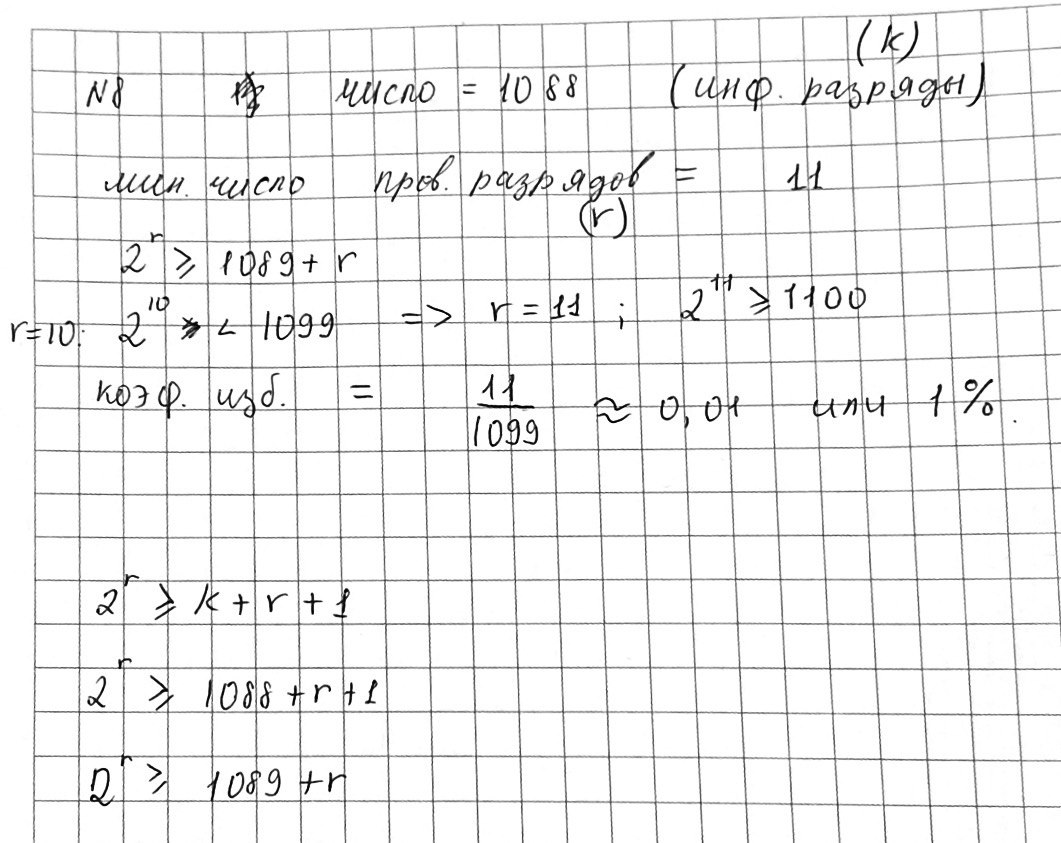 (k)
N8 число = 1088 (инф. разряды)
мин. число пров. разрядов = 11
(r)
2^r ≥ 1089 + r
r=10: 2^10 < 1099 => r = 11 ; 2^11 ≥ 1100
коэф. изб. = 11/1099 ≈ 0,01 или 1%.
2^r ≥ k + r + 1
2^r ≥ 1088 + r + 1
2^r ≥ 1089 + r